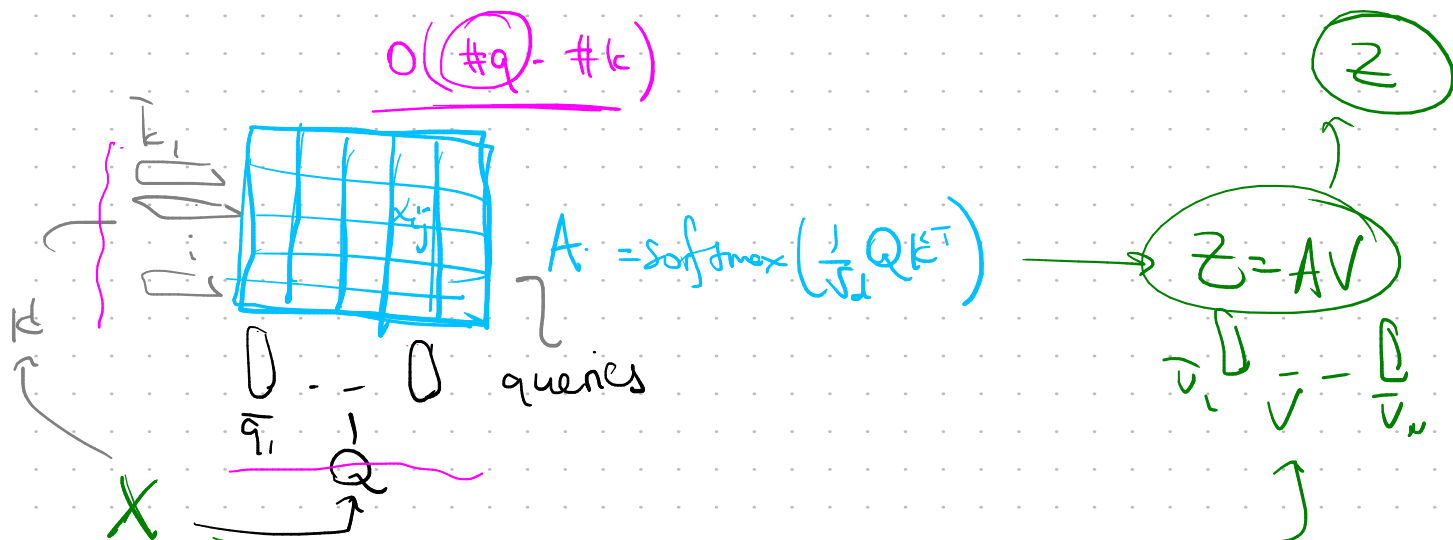 O(#q · #k)
Z
k̄₁
αᵢⱼ
A = softmax(1/√d QKᵀ)
Z = AV
⋮
K
queries
q̄₁
Q
v̄₁
V
v̄ₙ
X